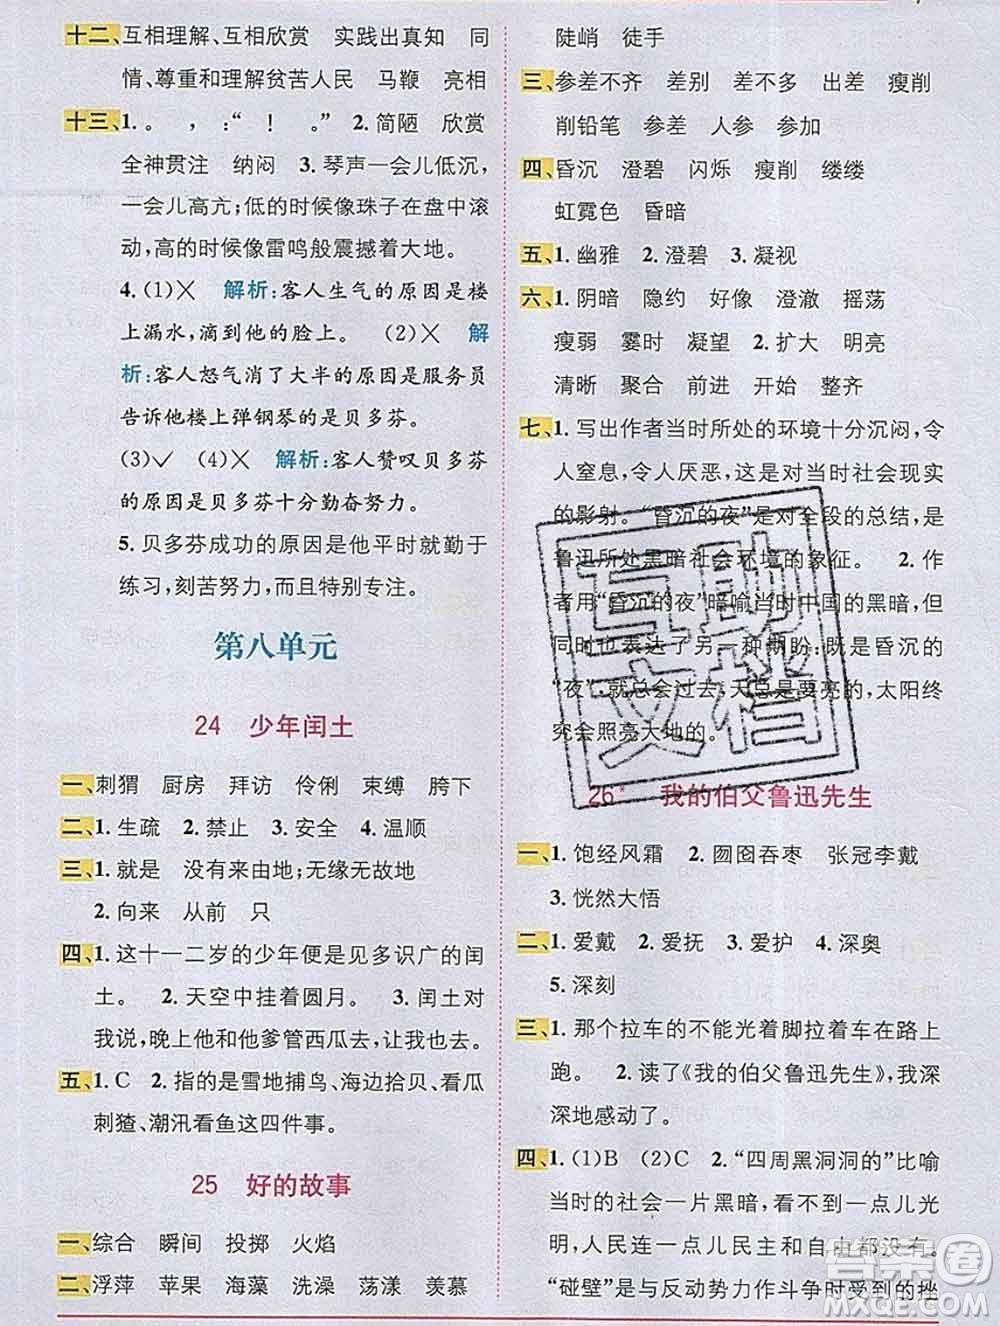 十二、互相理解、互相欣赏　实践出真知　同
情、尊重和理解贫苦人民　马鞭　亮相
十三、1.。　，　:“　！　。”　2.简陋　欣赏
全神贯注　纳闷　3.琴声一会儿低沉，
一会儿高亢；低的时候像珠子在盘中滚
动，高的时候像雷鸣般震撼着大地。
4.(1)✕　解析：客人生气的原因是楼
上漏水，滴到他的脸上。　(2)✕　解
析：客人怒气消了大半的原因是服务员
告诉他楼上弹钢琴的是贝多芬。
(3)✓　(4)✕　解析：客人赞叹贝多芬
的原因是贝多芬十分勤奋努力。
5.贝多芬成功的原因是他平时就勤于
练习，刻苦努力，而且特别专注。
第八单元
24　少年闰土
一、刺猬　厨房　拜访　伶俐　束缚　胯下
二、1.生疏　2.禁止　3.安全　4.温顺
三、1.就是　没有来由地；无缘无故地
2.向来　从前　只
四、1.这十一二岁的少年便是见多识广的闰
土。　2.天空中挂着圆月。　3.闰土对
我说，晚上他和他爹管西瓜去，让我也去。
五、1.C　2.指的是雪地捕鸟、海边拾贝、看瓜
刺猹、潮汛看鱼这四件事。
25　好的故事
一、综合　瞬间　投掷　火焰
二、浮萍　苹果　海藻　洗澡　荡漾　羡慕
陡峭　徒手
三、参差不齐　差别　差不多　出差　瘦削
削铅笔　参差　人参　参加
四、昏沉　澄碧　闪烁　瘦削　缕缕
虹霓色　昏暗
五、1.幽雅　2.澄碧　3.凝视
六、1.阴暗　隐约　好像　澄澈　摇荡
瘦弱　霎时　凝望　2.扩大　明亮
清晰　聚合　前进　开始　整齐
七、1.写出作者当时所处的环境十分沉闷，令
人窒息，令人厌恶，这是对当时社会现实
的影射。“昏沉的夜”是对全段的总结，是
鲁迅所处黑暗社会环境的象征。　2.作
者用“昏沉的夜”暗喻当时中国的黑暗、但
同时也表达了另一种期盼：既是昏沉的
“夜”，就总会过去，天总是要亮的，太阳终
究会照亮大地的。
26*　我的伯父鲁迅先生
一、1.饱经风霜　2.囫囵吞枣　张冠李戴
3.恍然大悟
二、1.爱戴　2.爱抚　3.爱护　4.深奥
5.深刻
三、1.那个拉车的不能光着脚拉着车在路上
跑。　2.读了《我的伯父鲁迅先生》，我深
深地感动了。
四、1.(1)B　(2)C　2.“四周黑洞洞的”比喻
当时的社会一片黑暗，看不到一点儿光
明，人民连一点儿民主和自由都没有。
“碰壁”是与反动势力作斗争时受到的挫
互助
文档
答案圈
MXQE.COM